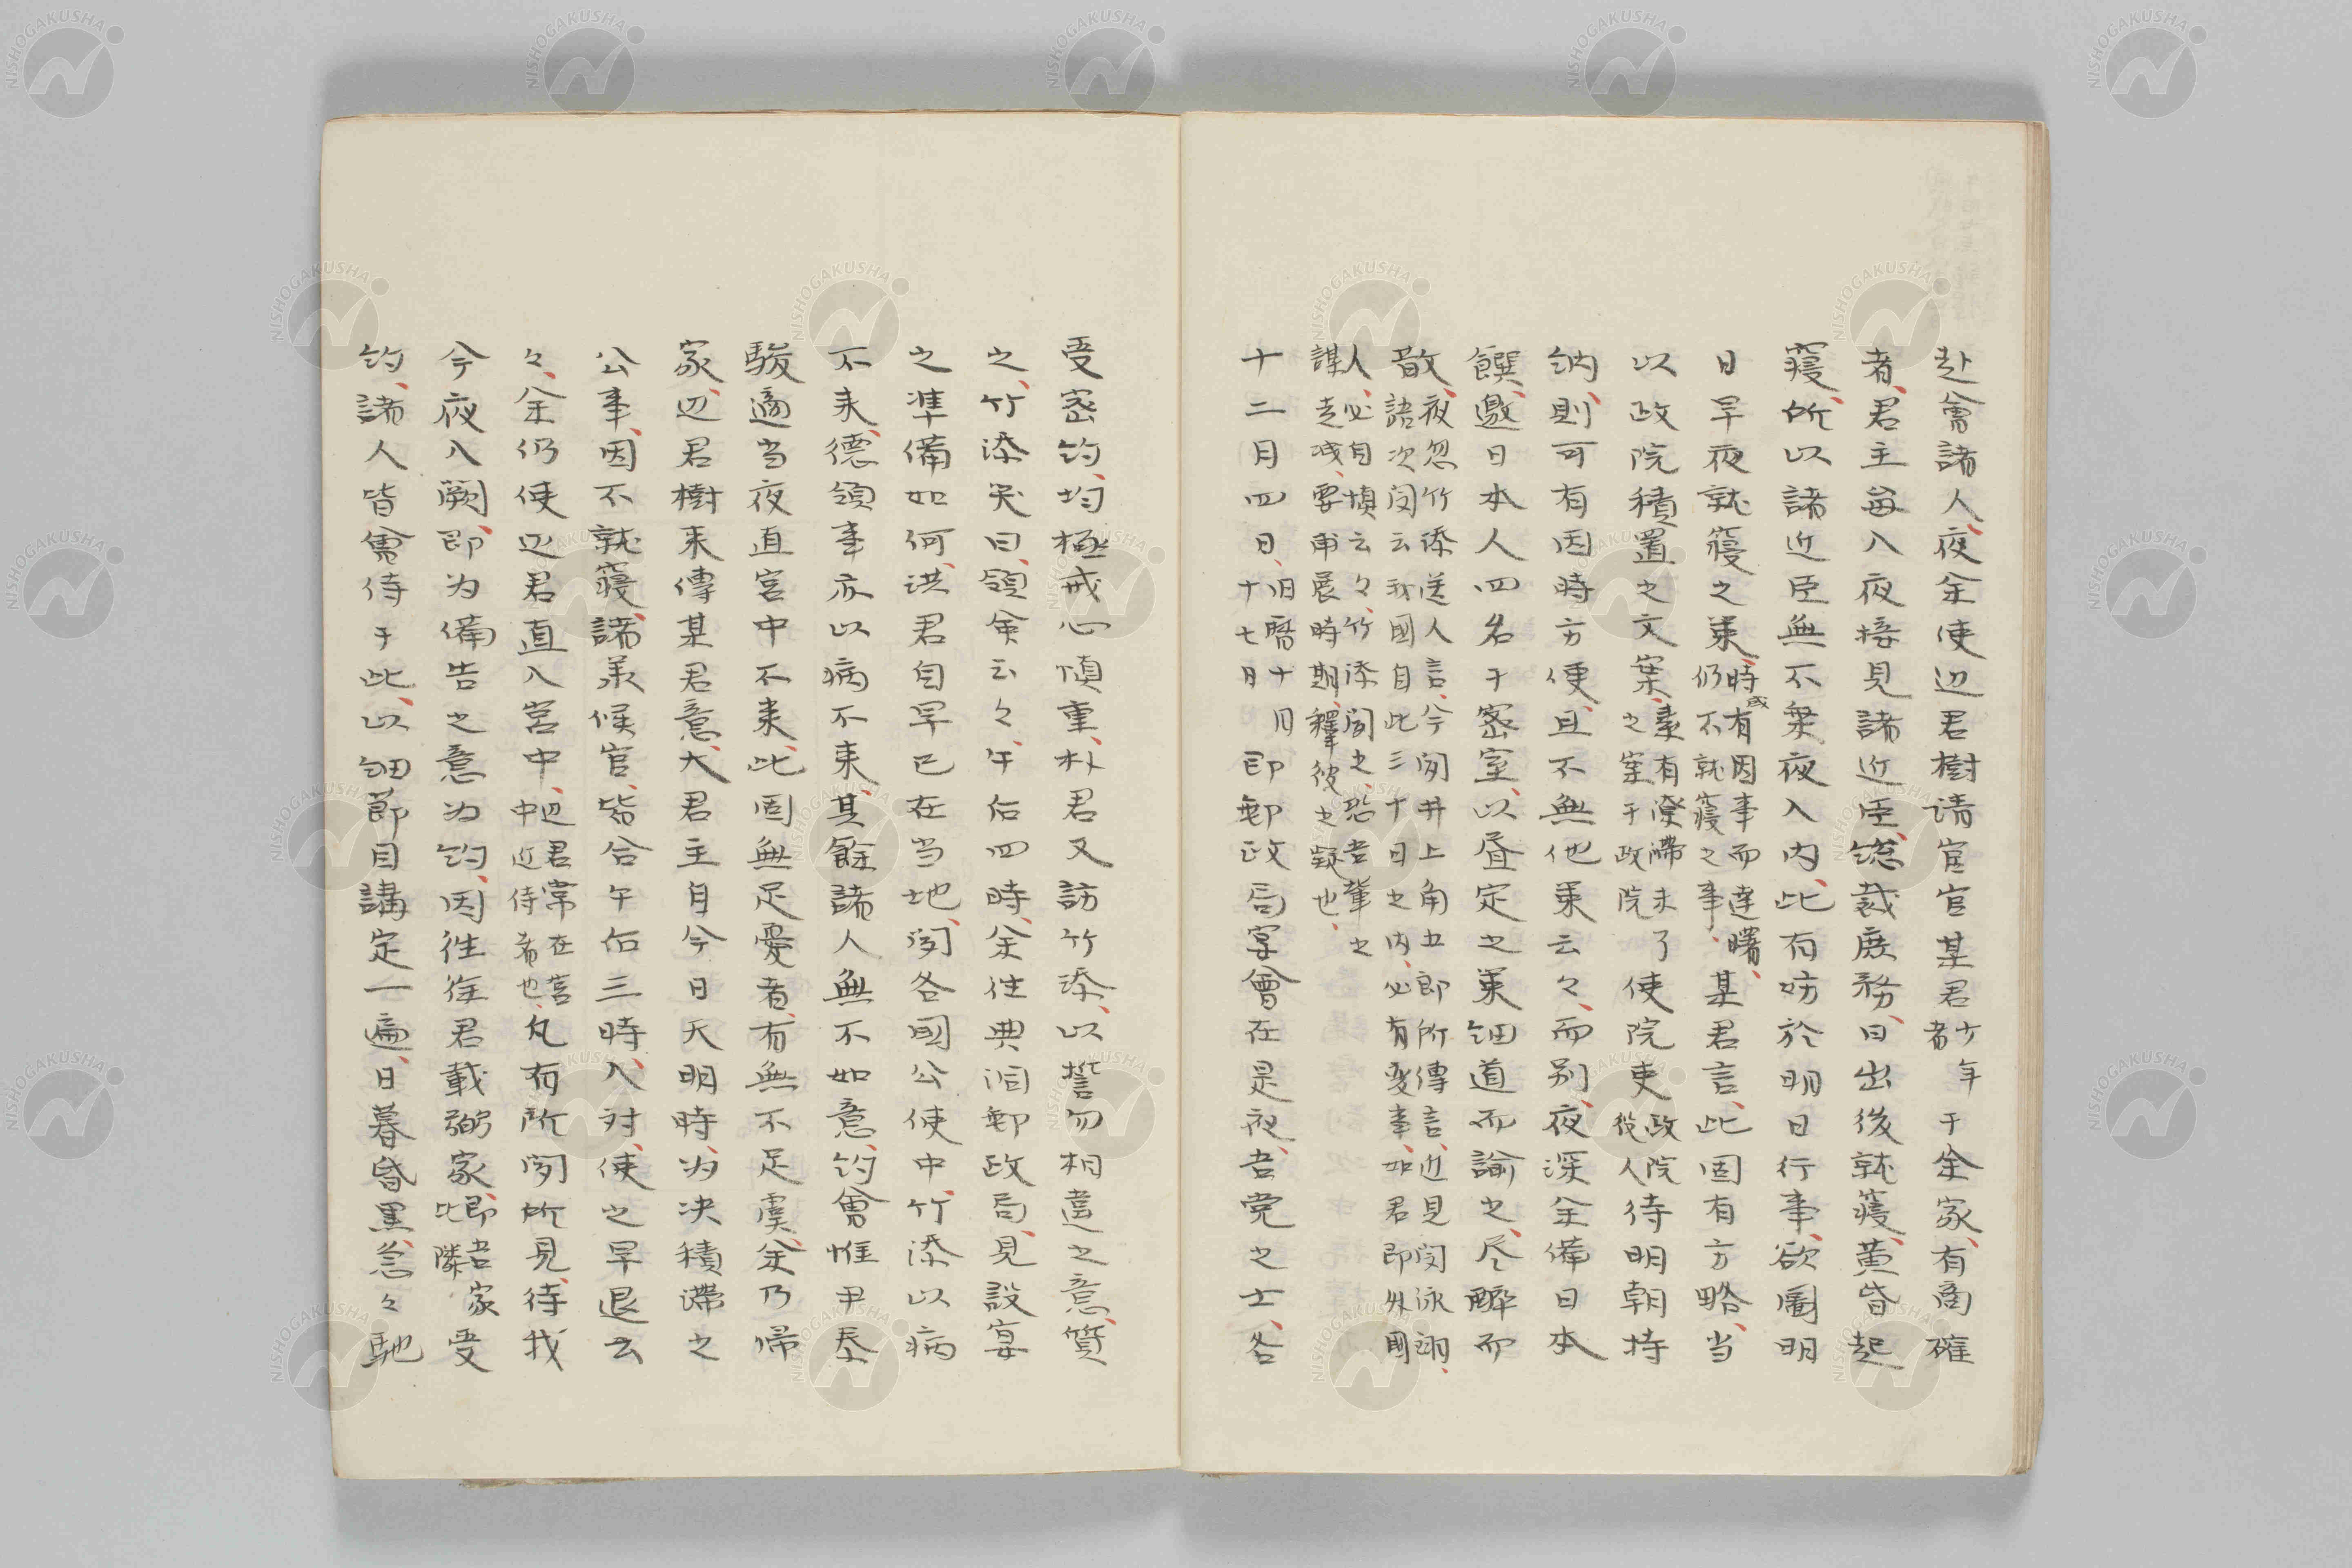 赴會諸人、夜余使边君樹请宦官某君少年者于余家、有商確
者、君主每入夜接見諸近臣、總裁庶務、日出後就寝、黄昏起
寝、所以諸近臣無不乗夜入内、此有妨於明日行事、欲圖明
日早夜就寝之策、時或有因事而達曙、仍不就寝之事、某君言、此固有方略、当
以政院積置之文案、素有滚滞未了之案于政院使院吏政院役人待明朝持
納、則可有因時方便、且不無他策云々、而别、夜深余備日本
饌、邀日本人四名于密室、以昼定之策細道而諭之、尽酔而
散、夜忽竹添送人言、今聞井上角五郎所傳言、近見閔泳翊、語次閔云我國自此三十日之内、必有変事、如君即外國
人、必自慎云々、竹添聞之、恐吾輩之謀走洩、要甫展時期、釋彼之疑也、
十二月四日、旧暦十月十七日即郵政局宴會在是夜、吾党之士、各
受密約、均極戒心慎重、朴君又訪竹添、以誓勿相違之意、質
之、竹添笑曰、領矣云々、午后四時、余往典洞郵政局、見設宴
之準備如何、洪君自早已在当地、聞各國公使中、竹添以病
不来、德領事亦以病不来、其餘諸人無不如意、約會惟尹泰
駿適当夜直宮中不来、此固無足憂者、有無不足虞、余乃帰
家、边君樹来傳某君意、大君主自今日天明時、为决積滞之
公事、因不就寝、諸承候官、皆合午后三時、入対、使之早退云
々、余仍使边君直入宮中、边君常在宮中近侍者也、凡有所聞所見、待我
今夜入闕、即为備告之意为約、因往徐君載弼家、即吾家比隣受
約、諸人皆會待于此、以細節目講定一遍、日暮昏黒、怱々馳